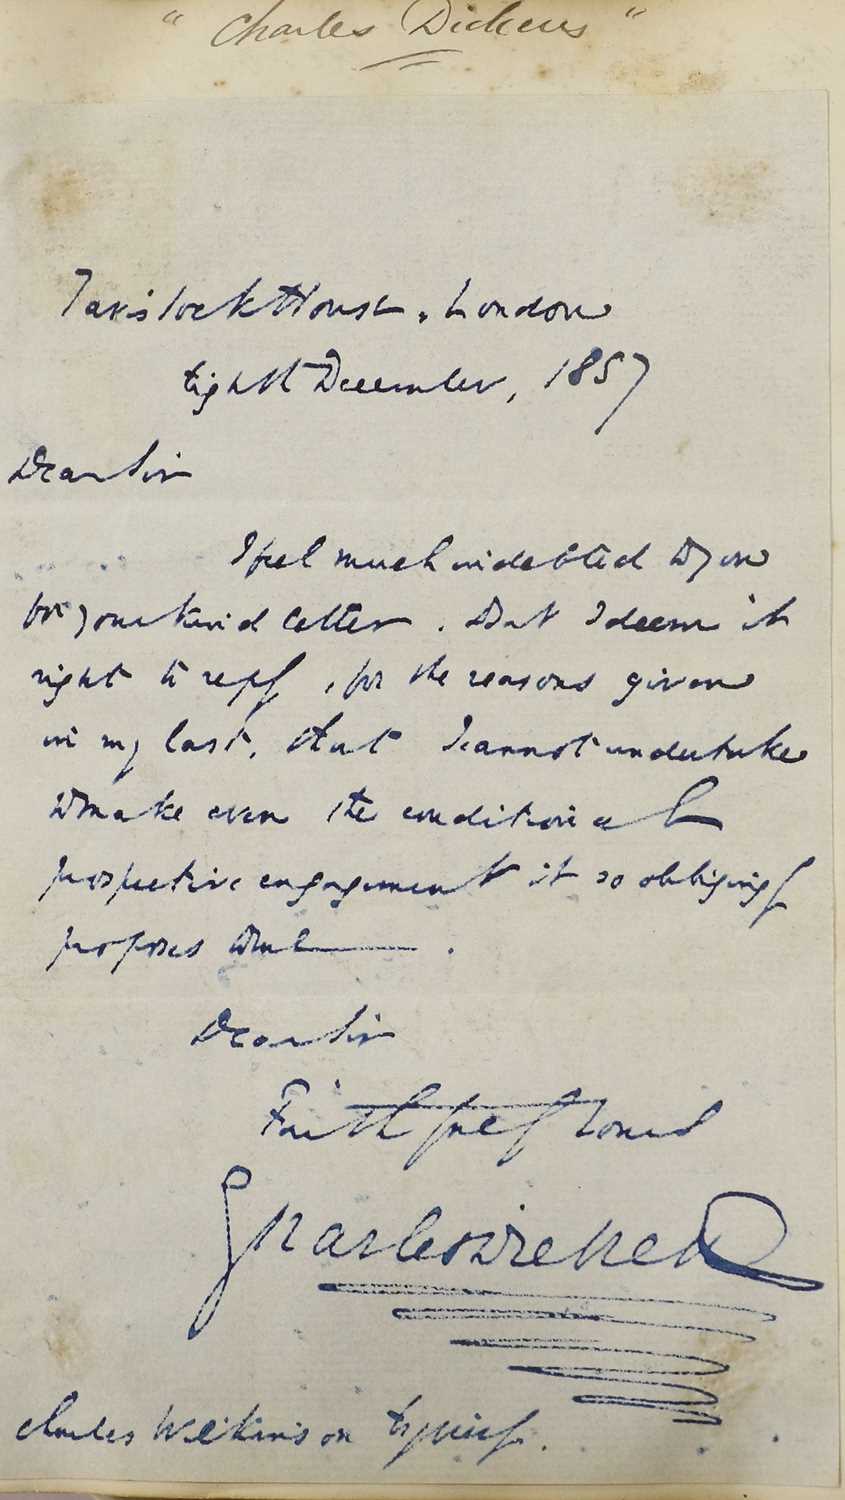 " Charles Dickens "
Tavistock House, London
Eighth December, 1857
Dear Sir
I feel much indebted to you
for your kind letter. But I deem it
right to reply, for the reasons given
in my last, that I cannot undertake
to make even the conditional
prospective engagement it so obligingly
proposes to me.
Dear Sir
Faithfully Yours
Charles Dickens
Charles Wilkinson Esquire.